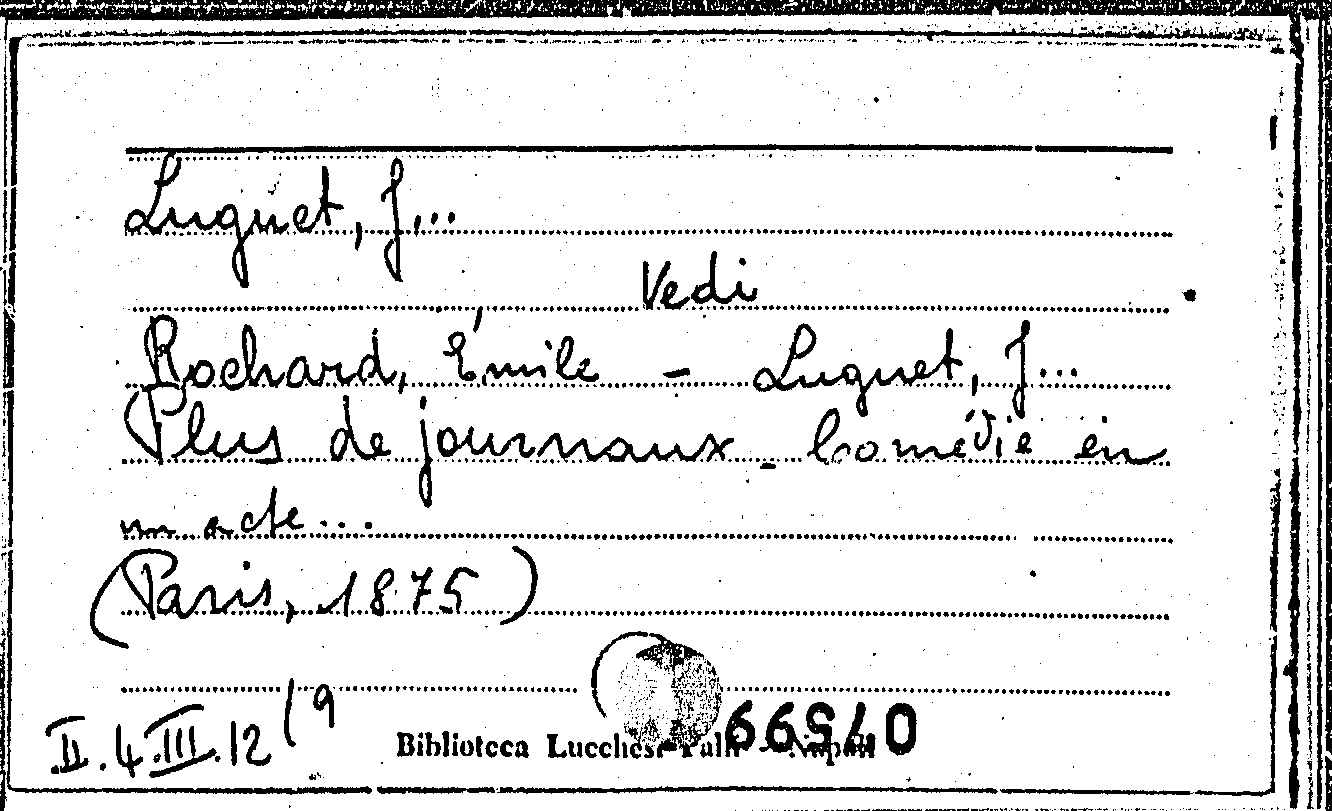 Luguet, J...
Vedi
Rochard, Émile - Luguet, J...
Plus de journaux - Comédie en
un acte...
(Paris, 1875)
II.4.III.12/9
Biblioteca Lucchesi-Palli - Napoli